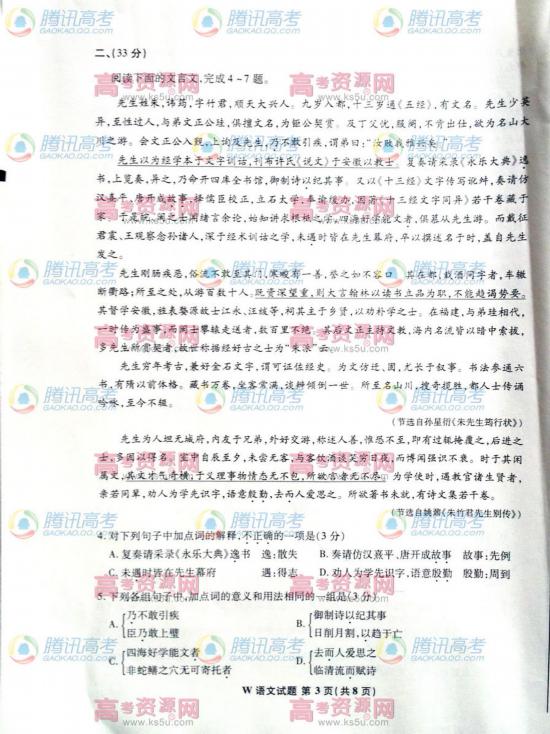 二、(33分)
阅读下面的文言文,完成4~7题。
先生姓朱,讳筠,字竹君,顺天大兴人。九岁入都,十三岁通《五经》,有文名。先生少英
异,至性过人,与弟文正公珪,俱擅文名,为钜公契赏。及丁父忧,服阕,不肯出仕,欲为名山大
川之游。会文正公入觐,上询及先生,乃不敢引疾,谓弟曰:“汝败我雅兴矣!”
先生以为经学本于文字训诂,刊布许氏《说文》于安徽以教士。复奏请采录《永乐大典》逸
书,上览奏,异之,乃命开四库全书馆,御制诗以纪其事。又以《十三经》文字传写讹舛,奏请仿
汉熹平、唐开成故事,择儒臣校正,立石太学,奉谕缓办,因著《十三经文字同异》若干卷藏于
家。于是皖、闽之士闻绪言余论,始知讲求根柢之学,四海好学能文者,俱慕从先生游。而戴征
君震、王观察念孙诸人,深于经术训诂之学,未遇时皆在先生幕府,卒以撰述名于时,盖自先生
发之。
先生刚肠疾恶,俗流不敢至其门,寒畯有一善,誉之如不容口。其在都,载酒问字者,车辙
断衢路;所至之处,从游百数十人。既资深望重,则大言翰林以读书立品为职,不能趋谒势要。
其督学安徽,旌表婺源故士江永、汪绂等,祠其主于乡贤,以劝朴学之士。在福建,与弟珪相代,
一时传为盛事,而闽士攀辕走送者,数百里不绝。其后文正主持文教,海内名流皆以暗中索拔,
多先生所赏契者,故世称据经好古之士为“朱派”云。
先生穷年考古,兼好金石文字,谓可证佐经史。为文仿迁、固,尤长于叙事。书法参通六
书,有隋以前体格。藏书万卷,坐客常满,谈辨倾倒一世。所至名山川,搜奇揽胜,都人士传诵
吟咏,至今不辍。
(节选自孙星衍《朱先生筠行状》)
先生为人坦无城府,内友于兄弟,外好交游,称述人善,惟恐不至,即有过辄掩覆之,后进之
士,多因以得名。室中自辰至夕,未尝无客,与客饮酒谈笑穷日夜,而博闻强识不衰。时于其闲
属文,其文才气奇横,于义理事物情态无不包,所欲言者无不尽。为学使时,遇教官诸生贤者,
亲若同辈,劝人为学先识字,语意殷勤,去而人爱思之。所欲著书未就,有诗文集若干卷。
(节选自姚鼐《朱竹君先生别传》)
4. 对下列句子中加点词的解释,不正确的一项是(3分)
A. 复奏请采录《永乐大典》逸书 逸:散失 B. 奏请仿汉熹平、唐开成故事 故事:先例
C. 未遇时皆在先生幕府 遇:得志 D. 劝人为学先识字,语意殷勤 殷勤:周到
5. 下列各组句子中,加点词的意义和用法相同的一组是(3分)
A. 乃不敢引疾 B. 御制诗以纪其事
臣乃敢上璧 日削月割,以趋于亡
C. 四海好学能文者 D. 去而人爱思之
非蛇鳝之穴无可寄托者 临清流而赋诗
W 语文试题 第 3 页(共 8 页)
腾讯高考
GAOKAO.QQ.COM
高考资源网
www.ks5u.com